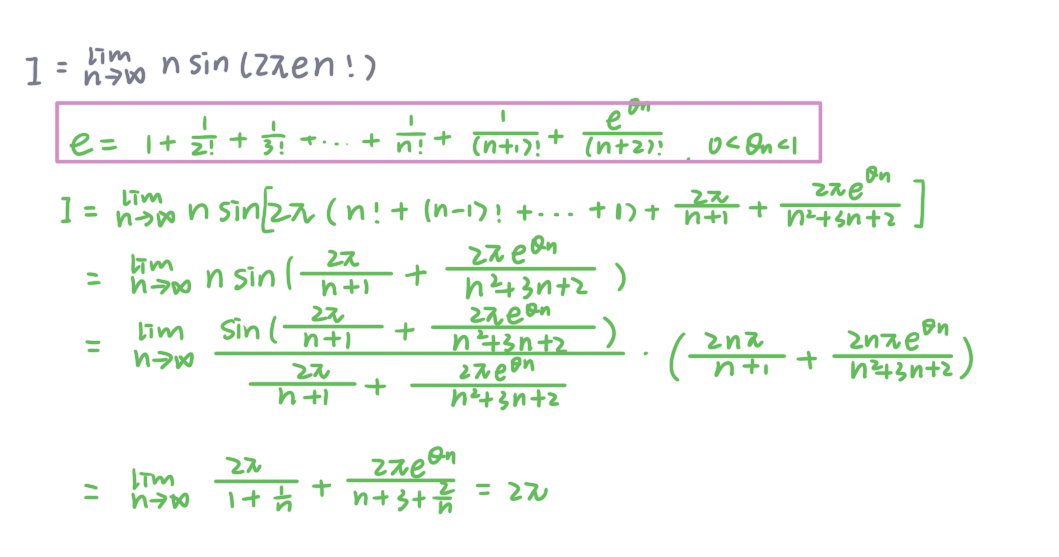 I = lim n→∞ n sin (2πen!)
e = 1 + 1/2! + 1/3! + ... + 1/n! + 1/(n+1)! + e^θn/(n+2)! . 0<θn<1
I = lim n→∞ n sin[2π (n! + (n-1)! + ... + 1) + 2π/(n+1) + 2πe^θn/(n²+3n+2)]
= lim n→∞ n sin (2π/(n+1) + 2πe^θn/(n²+3n+2))
= lim n→∞ sin (2π/(n+1) + 2πe^θn/(n²+3n+2)) / (2π/(n+1) + 2πe^θn/(n²+3n+2)) · (2nπ/(n+1) + 2nπe^θn/(n²+3n+2))
= lim n→∞ 2π/(1+1/n) + 2πe^θn/(n+3+2/n) = 2π